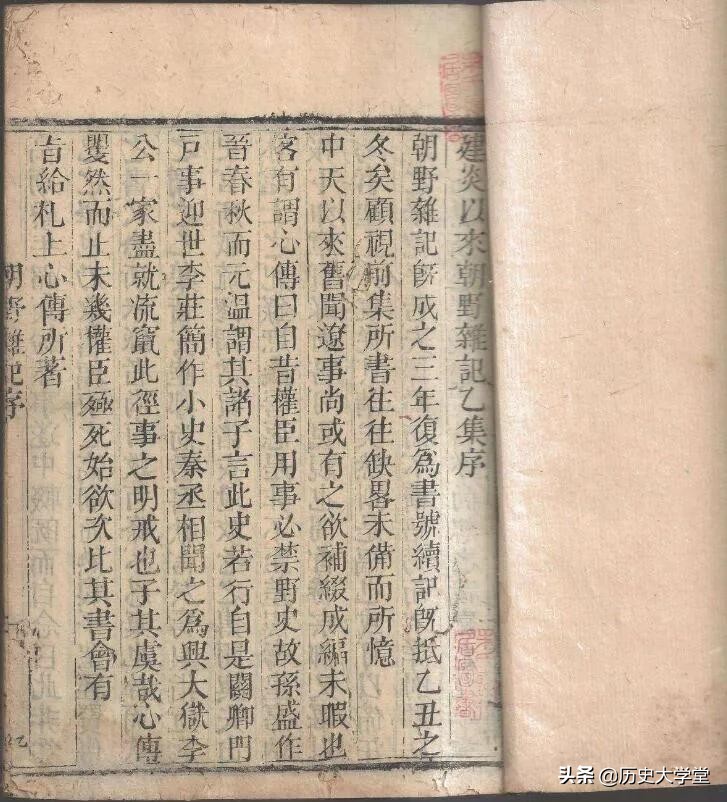 建炎以來朝野雜記乙集序
朝野雜記旣成之三年復爲書號續記旣抵乙丑之
冬矣顧視前集所書往往缺畧未備而所憶
中天以來舊聞遼事尚或有之欲補綴成編未暇也
客有謂心傳曰自昔權臣用事必禁野史故孫盛作
晉春秋而元溫謂其諸子言此史若行自是關卿門
戸事迎世李莊簡作小史秦丞相聞之爲興大獄李
公一家盡就流竄此徑事之明戒也子其虞哉心傳
矍然而止未幾權臣殛死始欲次比其書會有
旨給札上心傳所著
朝野雜記序
头条 @历史大学堂